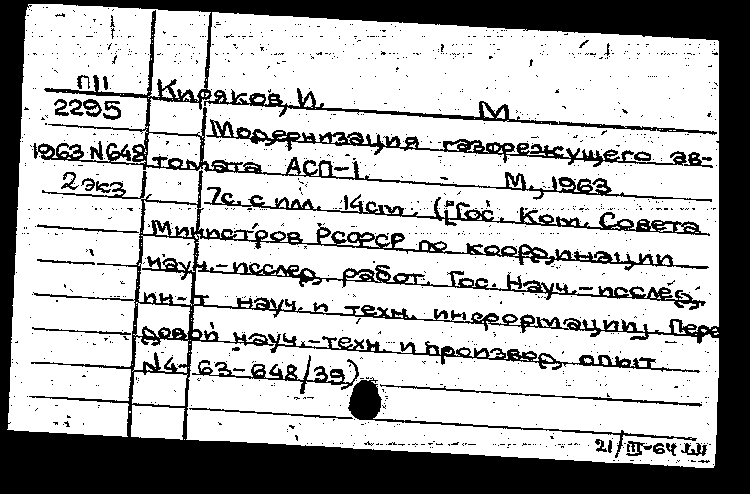 П11
2295
Киряков, И. М.
Модернизация газорежущего ав-
1963 N648
томата АСП-1. - М., 1963.
2 экз
7с. с илл. 14см. ([Гос. Ком. Совета
Министров РСФСР по координации
науч.-исслед. работ. Гос. Науч.-исслед.
ин-т науч. и техн. информации]. Пере
довой науч.-техн. и производ. опыт.
N4-63-648/39)
21/III-64